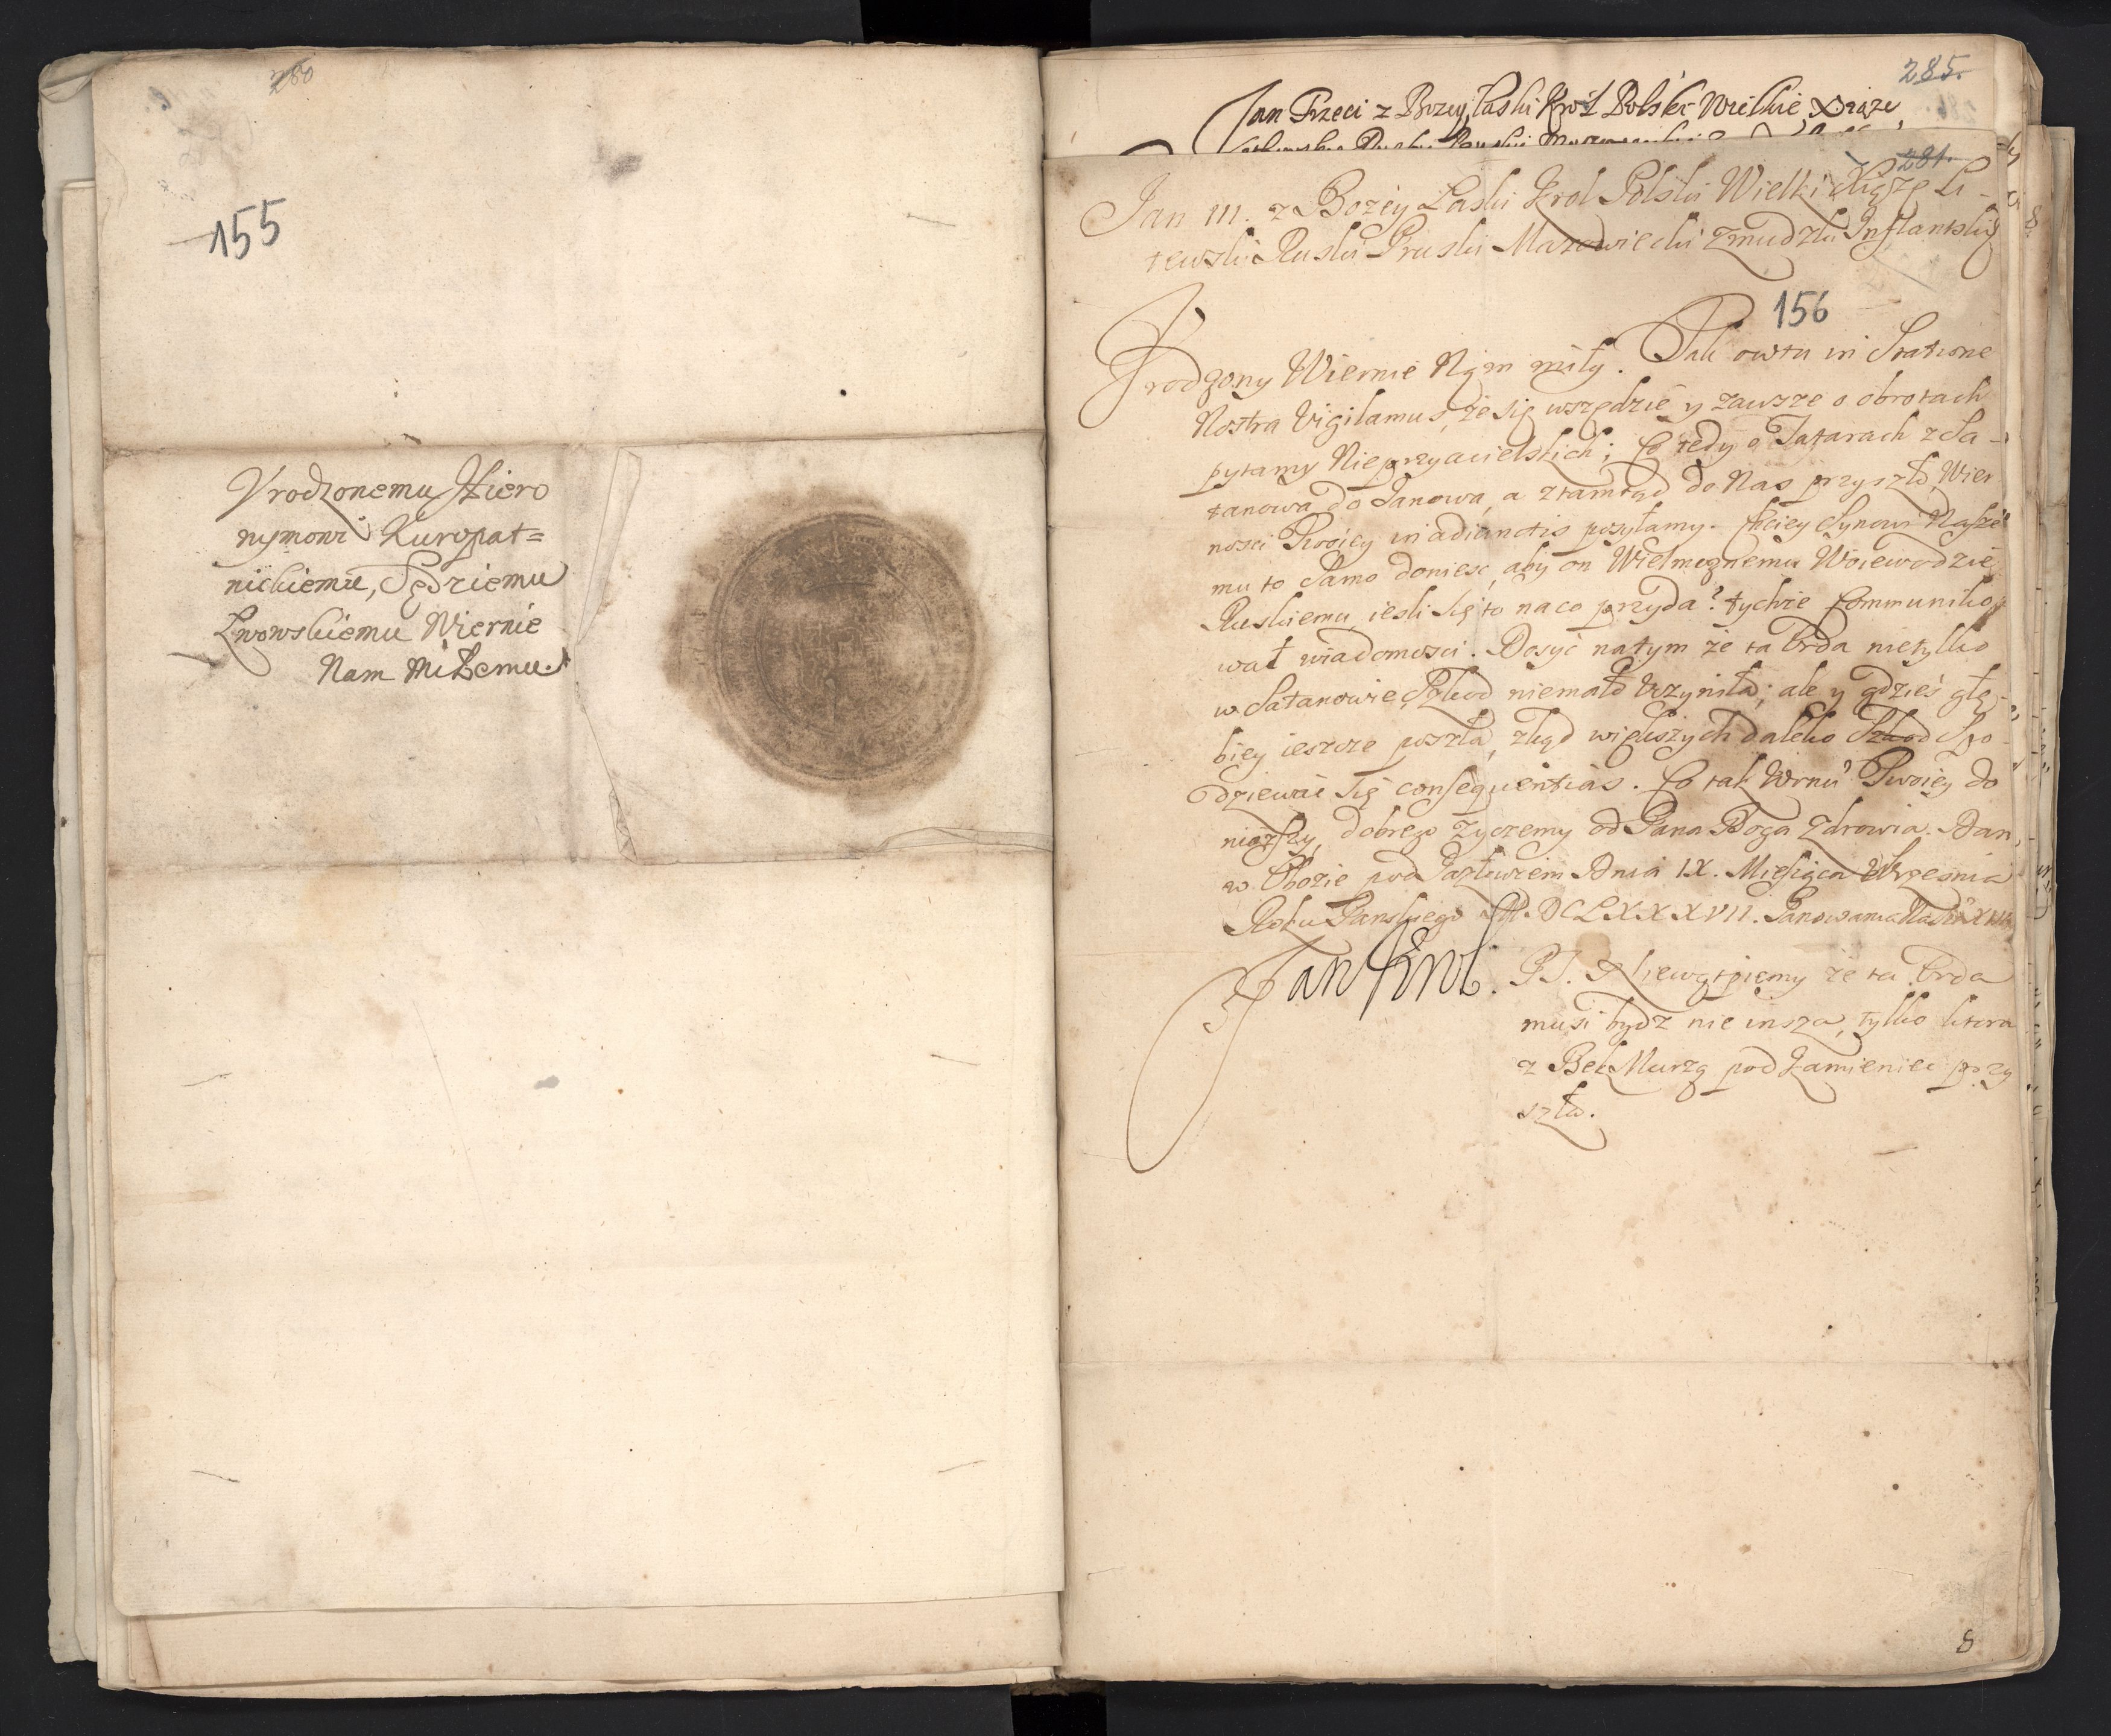 280
155
Vrodzonemu Hiero
nymowi Kuropat=
nickiemu, Sędziemu
Lwowskiemu Wiernie
Nam Miłemu.
285.
Jan Trzeci z Bozey Łaski Krol Polski Wielkie Xiąże
281.
Jan III. z Bożey Łaski Krol Polski Wielki Xiąże Li-
tewski Ruski Pruski Mazowiecki Zmudzki Inflantski
156
Vrodzony Wiernie Nam miły. Tak in Statione
Nostra Vigilamus, że się wszędzie y zawsze o obrotach
pytamy Nieprzyacielskich; Co tedy o Tatarach z Sa-
tanowa do Janowa, a ztamtąd do Nas przyszło, Wier
nosci Twoiey in adiunctis posyłamy. Chciey Synowi Nasze
mu to Samo donieść, aby on Wielmoznemu Woiewodzie
Ruskiemu, iesli się to na co przyda? tychże Communiko
wał wiadomosci. Dosyć natym że ta Orda nietylko
w Satanowie Szkod niemało Vczyniła; ale y gdzieś głę-
biey ieszcze poszła, zkąd większych daleko Szkod Spo-
dziewać Się consequentias. Co tak Wrnći Twoiey do
niozszy, dobrego życzemy od Pana Boga Zdrowia. Dan
w Obozie pod Jazłowiem Dnia IX. Miesiąca Września
Roku Panskiego M.DCLXXXVII. Panowania Naszego
Jan Krol.
PS. Niewątpiemy że ta Orda
musi bydz nie insza, tylko ktora
z Bek Murzą pod Kamieniec przy
szła.
8